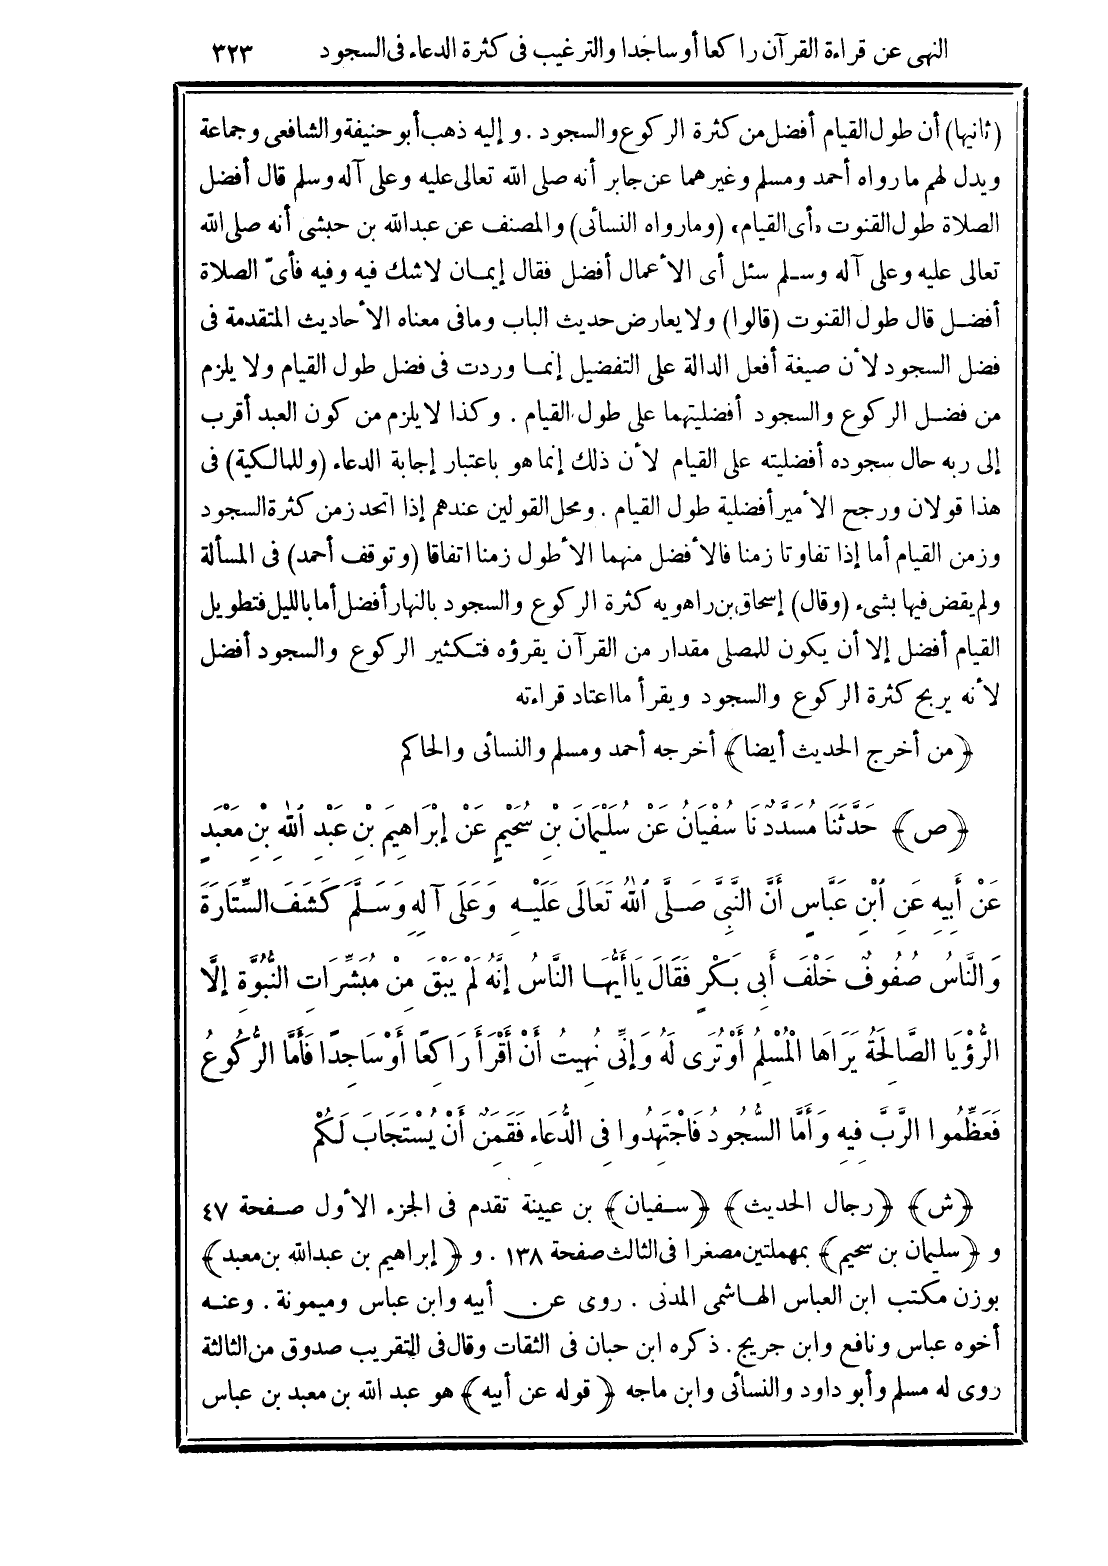 النهى عن قراءة القرآن راكعا أو ساجدا والترغيب فى كثرة الدعاء فى السجود ٣٢٣
(ثانيها) أن طول القيام أفضل من كثرة الركوع والسجود . وإليه ذهب أبو حنيفة والشافعى وجماعة
ويدل لهم مارواه أحمد ومسلم وغيرهما عن جابر أنه صلى الله تعالى عليه وعلى آله وسلم قال أفضل
الصلاة طول القنوت «أى القيام» (ومارواه النسائى) والمصنف عن عبدالله بن حبشى أنه صلى الله
تعالى عليه وعلى آله وسلم سئل أى الأعمال أفضل فقال إيمان لاشك فيه وفيه فأىّ الصلاة
أفضل قال طول القنوت (قالوا) ولايعارض حديث الباب ومافى معناه الأحاديث المتقدمة فى
فضل السجود لأن صيغة أفعل الدالة على التفضيل إنما وردت فى فضل طول القيام ولايلزم
من فضل الركوع والسجود أفضليتهما على طول القيام . وكذا لايلزم من كون العبد أقرب
إلى ربه حال سجوده أفضليته على القيام لأن ذلك إنما هو باعتبار إجابة الدعاء (وللمالكية) فى
هذا قولان ورجح الأمير أفضلية طول القيام . ومحل القولين عندهم إذا اتحد زمن كثرة السجود
وزمن القيام أما إذا تفاوتا زمنا فالأفضل منهما الأطول زمنا اتفاقا (وتوقف أحمد) فى المسألة
ولم يقض فيها بشىء (وقال) إسحاق بن راهويه كثرة الركوع والسجود بالنهار أفضل أما بالليل فتطويل
القيام أفضل إلا أن يكون للمصلى مقدار من القرآن يقرؤه فتكثير الركوع والسجود أفضل
لأنه يربح كثرة الركوع والسجود ويقرأ مااعتاد قراءته
﴿من أخرج الحديث أيضا﴾ أخرجه أحمد ومسلم والنسائى والحاكم
﴿ص﴾ حَدَّثَنَا مُسَدَّدٌ نَا سُفْيَانُ عَنْ سُلَيْمَانَ بْنِ سُحَيْمٍ عَنْ إِبْرَاهِيمَ بْنِ عَبْدِ اللهِ بْنِ مَعْبَدٍ
عَنْ أَبِيهِ عَنِ ابْنِ عَبَّاسٍ أَنَّ النَّبِيَّ صَلَّى اللهُ تَعَالَى عَلَيْهِ وَعَلَى آلِهِ وَسَلَّمَ كَشَفَ السِّتَارَةَ
وَالنَّاسُ صُفُوفٌ خَلْفَ أَبِي بَكْرٍ فَقَالَ يَاأَيُّهَا النَّاسُ إِنَّهُ لَمْ يَبْقَ مِنْ مُبَشِّرَاتِ النُّبُوَّةِ إِلَّا
الرُّؤْيَا الصَّالِحَةُ يَرَاهَا الْمُسْلِمُ أَوْتُرَى لَهُ وَإِنِّي نُهِيتُ أَنْ أَقْرَأَ رَاكِعًا أَوْ سَاجِدًا فَأَمَّا الرُّكُوعُ
فَعَظِّمُوا الرَّبَّ فِيهِ وَأَمَّا السُّجُودُ فَاجْتَهِدُوا فِى الدُّعَاءِ فَقَمِنٌ أَنْ يُسْتَجَابَ لَكُمْ
﴿ش﴾ ﴿رجال الحديث﴾ ﴿سفيان﴾ بن عيينة تقدم فى الجزء الأول صفحة ٤٧
و ﴿سليمان بن سحيم﴾ بمهملتين مصغرا فى الثالث صفحة ١٣٨ . و ﴿إبراهيم بن عبدالله بن معبد﴾
بوزن مكتب ابن العباس الهاشمى المدنى . روى عن أبيه وابن عباس وميمونة . وعنه
أخوه عباس ونافع وابن جريج . ذكره ابن حبان فى الثقات وقال فى التقريب صدوق من الثالثة
روى له مسلم وأبو داود والنسائى وابن ماجه ﴿قوله عن أبيه﴾ هو عبد الله بن معبد بن عباس